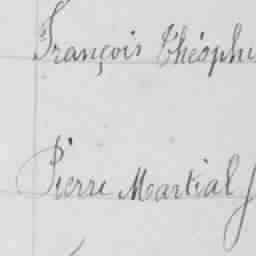 François Théophi
Pierre Martial